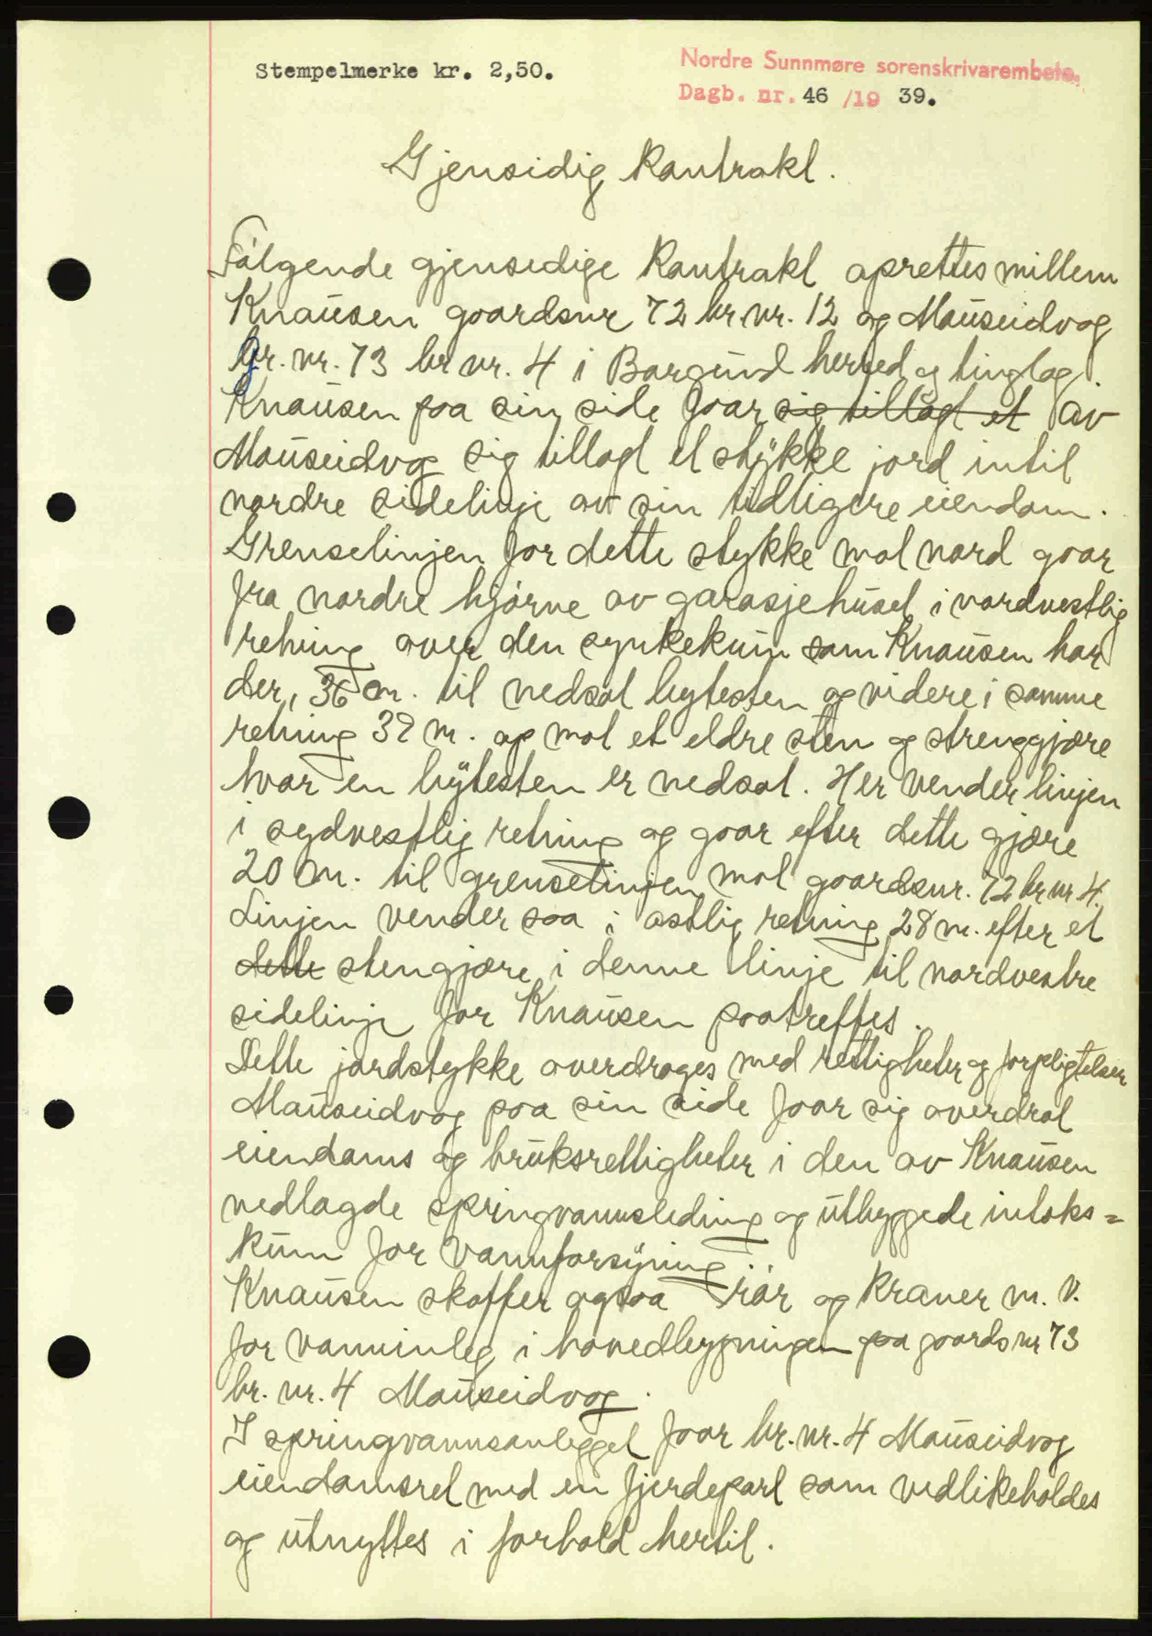 Stempelmerke kr. 2,50.
Nordre Sunnmøre sorenskrivarembete.
Dagb. nr. 46 /19 39.
Gjensidig Kontrakt.
Følgende gjensidige Kontrakt oprettes millem
Knausen gaardsnr 72 br.nr. 12 og Mauseidvog
Gr. nr. 73 br nr. 4 i Borgund herred og tinglag.
Knausen paa sin side faar sig tillagt et av
Mauseidvog sig tillagt et stykke jord intil
nordre sidelinje av sin tidligere eiendom.
Grenselinjen for dette stykke mot nord gaar
fra nordre hjørne av garasjehuset i nordvestlig
retning over den synkekum som Knausen har
der, 36 m. til nedsat bytesten og videre i samme
retning 32 m. op mot et eldre sten og strenggjære
hvor en bytesten er nedsat. Her vender linjen
i sydvestlig retning og gaar efter dette gjære
20 m. til grenselinjen mot gaardsnr. 72 br nr 4.
Linjen vender saa i østlig retning 28 m. efter et
dette stengjære i denne linje til nordvestre
sidelinje for Knausen paatreffes.
Dette jordstykke overdrages med rettigheter og forpligtelser
Mauseidvog paa sin side faar sig overdrat
eiendoms og bruksrettigheter i den av Knausen
nedlagde springvannsledning og utbyggede intaks=
kum for vannforsyning.
Knausen skaffer ogsaa rør og kraner m. v.
for vanninleg i hovedbygningen paa gaards nr 73
br. nr. 4 Mauseidvog.
I springvannsanlegget faar br. nr. 4 Mauseidvog
eiendomsret med en fjerdepart som vedlikeholdes
og utnyttes i forhold hertil.